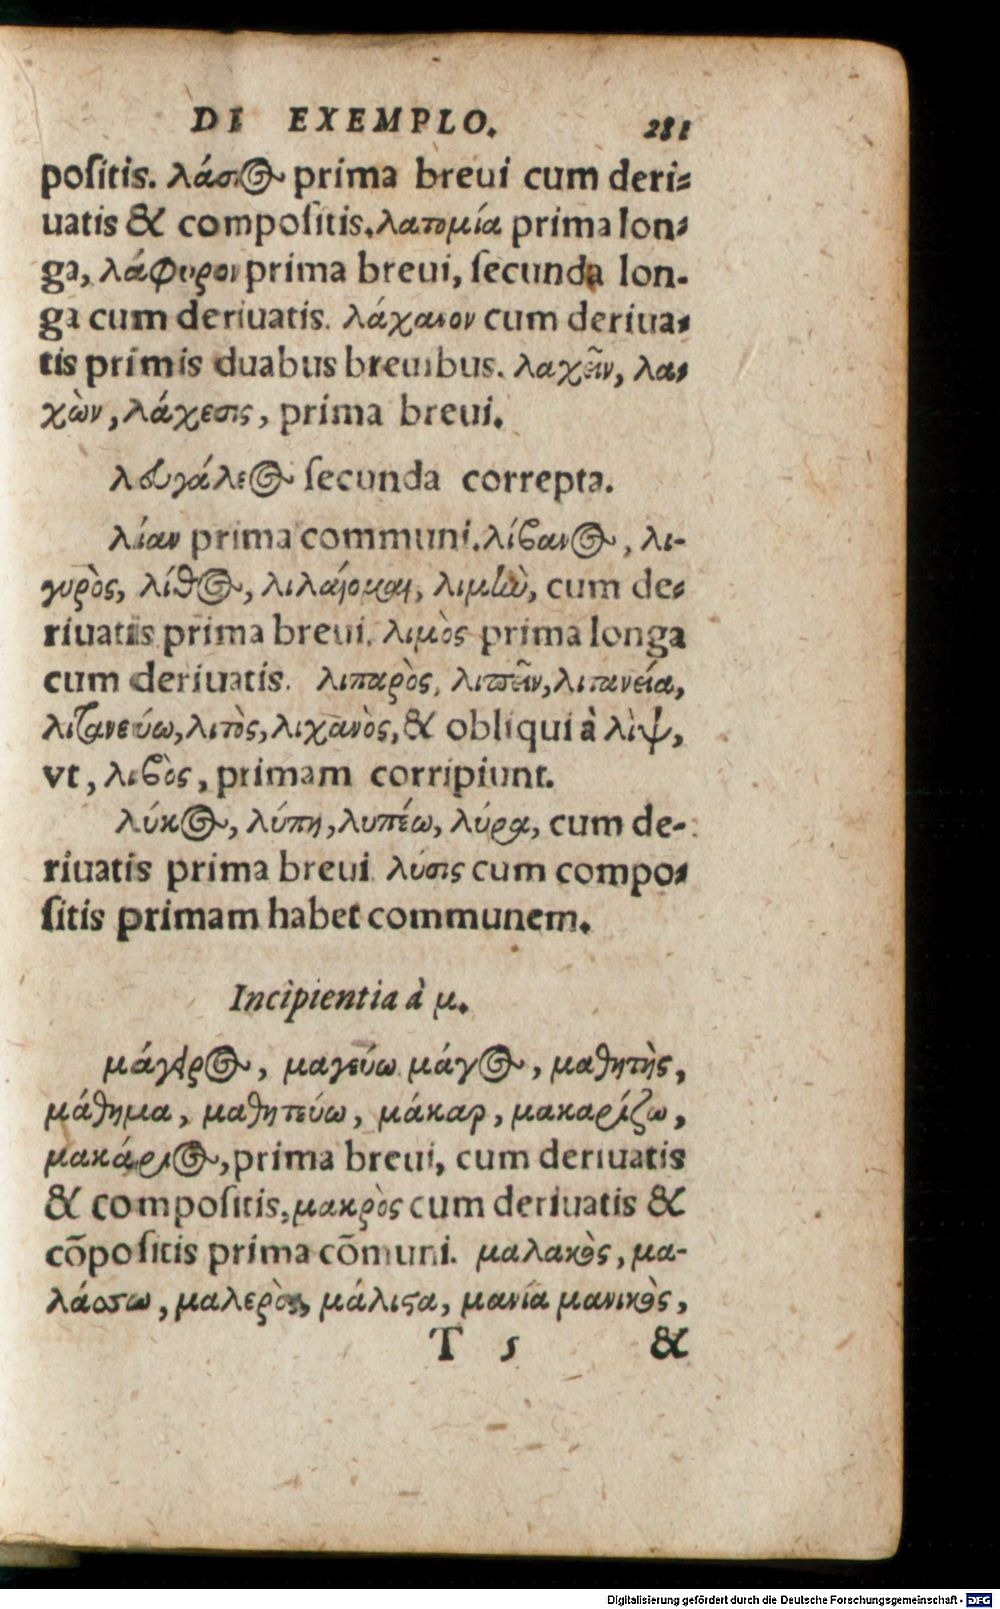 DE EXEMPLO. 281
poſitis. λάσιος prima breui cum deri-
uatis & compoſitis. λατομία prima lon-
ga, λάφυρον prima breui, ſecunda lon-
ga cum deriuatis. λάχανον cum deriua-
tis primis duabus breuibus. λαχεῖν, λα-
χὼν, λάχεσις, prima breui.
λευγάλεος ſecunda correpta.
λίαν prima communi. λίβανος, λι-
γυρὸς, λίθος, λιλαίομαι, λιμὴν, cum de-
riuatis prima breui. λιμὸς prima longa
cum deriuatis. λιπαρὸς, λιπεῖν, λιτανεία,
λιτανεύω, λιτὸς, λιχανὸς, & obliqui à λὶψ,
vt, λιβὸς, primam corripiunt.
λύκος, λύπη, λυπέω, λύρα, cum de-
riuatis prima breui λύσις cum compo-
ſitis primam habet communem.
Incipientia à μ.
μάγειρος, μαγεύω μάγος, μαθητὴς,
μάθημα, μαθητεύω, μάκαρ, μακαρίζω,
μακάριος, prima breui, cum deriuatis
& compoſitis, μακρὸς cum deriuatis &
cōpoſitis prima cōmuni. μαλακὸς, μα-
λάσσω, μαλερὸς, μάλιστα, μανία μανικὸς,
T 5 &
Digitalisierung gefördert durch die Deutsche Forschungsgemeinschaft - DFG